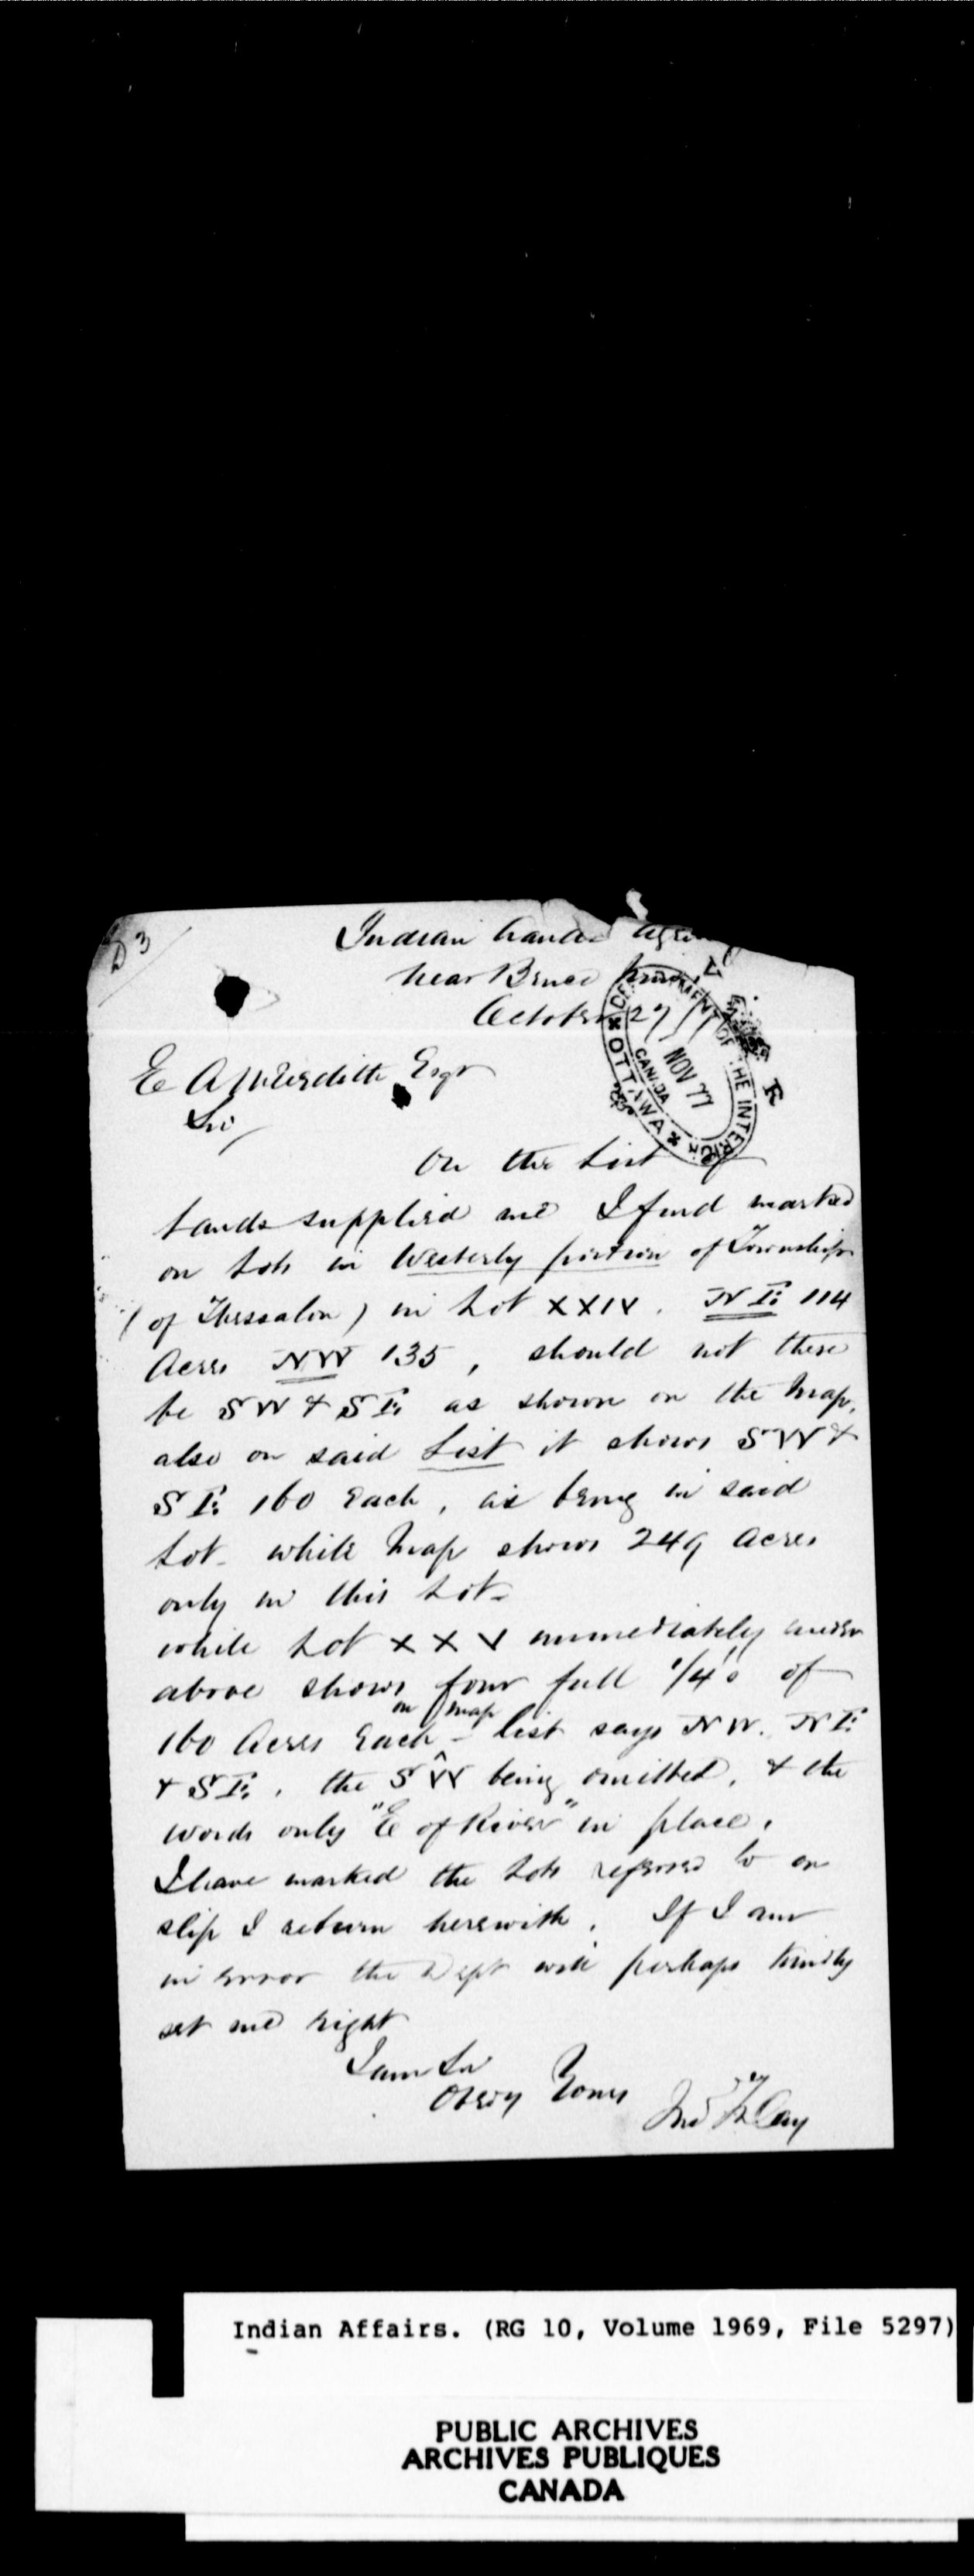 D 3
Indian Lands Agency
near Bruce Mines
October 27 / 77
DEPARTMENT OF THE INTERIOR
OTTAWA
CANADA
NOV 77
E A Meredith Esqr
Sir
On the List of
Lands supplied me I find marked
on Lots in Westerly portion of Township
(of Thessalon) in Lot XXIV. NE: 114
Acres NW 135, should not these
be SW & SE as shown on the Map,
also on said List it shows SW &
SE: 160 Each, as being in said
Lot - while Map shows 249 Acres
only in this Lot -
while Lot XXV immediately
above shows four full 1/4s of
on map
160 Acres Each - list says NW. NE:
& SE, the SW being omitted, & the
words only "E of River" in place,
I have marked the Lots referred to on
slip I return herewith. If I am
in error the Dept will perhaps kindly
set me right
I am Sir
Obedy Yours
Day
Indian Affairs. (RG 10, Volume 1969, File 5297)
PUBLIC ARCHIVES
ARCHIVES PUBLIQUES
CANADA